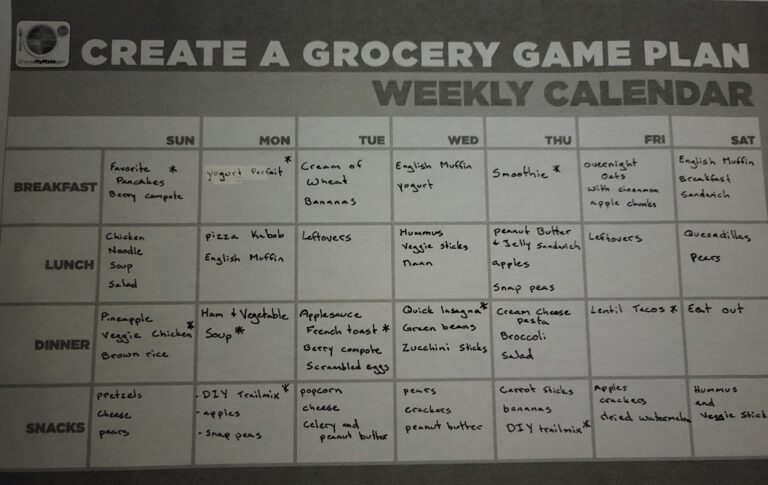 ChooseMyPlate.gov
CREATE A GROCERY GAME PLAN
WEEKLY CALENDAR
SUN MON TUE WED THU FRI SAT
BREAKFAST
Favorite *
Pancakes
Berry compote
yogurt Parfait *
Cream of
Wheat
Bananas
English Muffin
yogurt
Smoothie *
overnight
Oats
with cinnamon
apple chunks
English Muffin
Breakfast
Sandwich
LUNCH
Chicken
Noodle
Soup
Salad
pizza Kabob
English Muffin
Leftovers
Hummus
Veggie sticks
Naan
peanut Butter
& Jelly Sandwich
apples
Snap peas
Leftovers
Quesadillas
Pears
DINNER
Pineapple
Veggie Chicken *
Brown rice
Ham & Vegetable
Soup *
Applesauce
French toast *
Berry compote
Scrambled eggs
Quick lasagna *
Green beans
Zucchini Sticks
Cream Cheese
pasta
Broccoli
Salad
Lentil Tacos *
Eat out
SNACKS
pretzels
cheese
pears
- DIY Trailmix *
- apples
- snap peas
popcorn
cheese
Celery and
peanut butter
pears
crackers
peanut butter
Carrot Sticks
bananas
DIY trailmix *
Apples
crackers
dried watermelon
Hummus
and
Veggie Stick